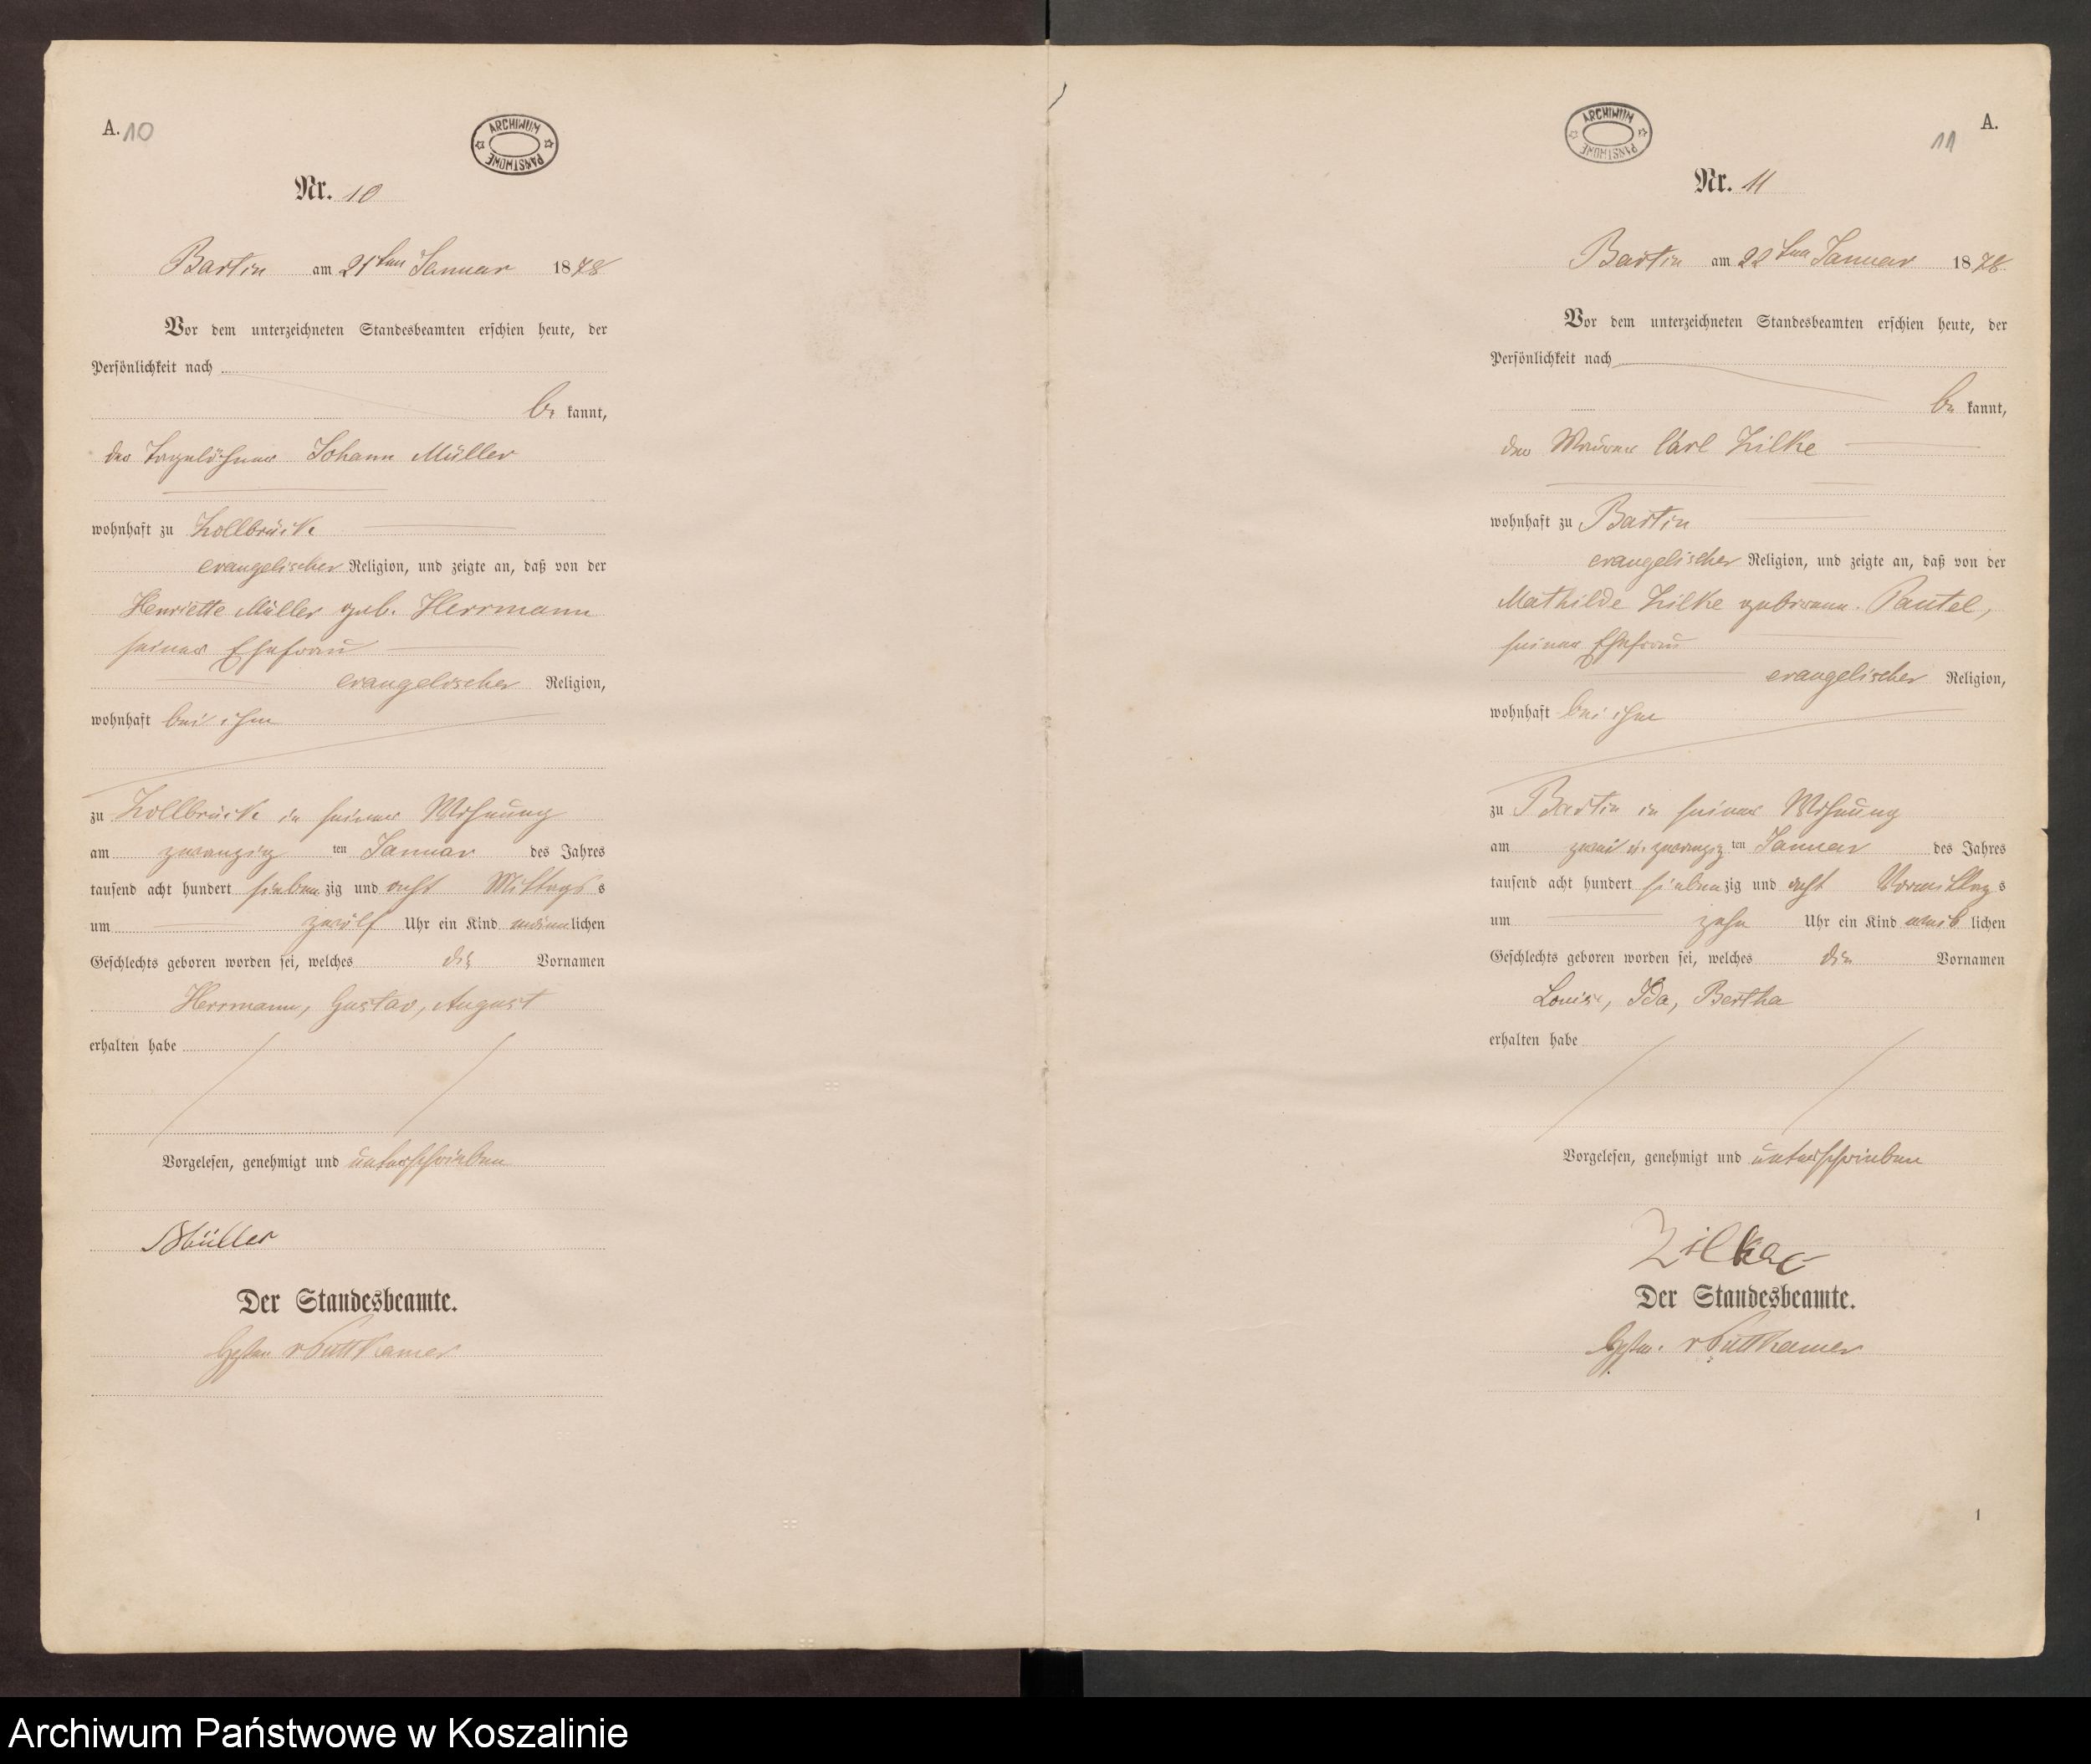 A. 10
ARCHIWUM PAŃSTWOWE
Nr. 10
Bartin am 21ten Januar 1878
Vor dem unterzeichneten Standesbeamten erschien heute, der
Persönlichkeit nach
be kannt,
der Tagelöhner Johann Müller
wohnhaft zu Zollbrück
evangelischer Religion, und zeigte an, daß von der
Henriette Müller geb. Herrmann
seiner Ehefrau
evangelischer Religion,
wohnhaft bei ihm
zu Zollbrück in seiner Wohnung
am zwanzig ten Januar des Jahres
tausend acht hundert sieben zig und acht Mittags s
um zwölf Uhr ein Kind männ lichen
Geschlechts geboren worden sei, welches die Vornamen
Herrmann, Gustav, August
erhalten habe
Vorgelesen, genehmigt und unterschrieben
Müller
Der Standesbeamte.
v Puttkamer
A.
11
ARCHIWUM PAŃSTWOWE
Nr. 11
Bartin am 22ten Januar 1878
Vor dem unterzeichneten Standesbeamten erschien heute, der
Persönlichkeit nach
be kannt,
der Maurer Carl Zilke
wohnhaft zu Bartin
evangelischer Religion, und zeigte an, daß von der
Mathilde Zilke geborenen Pautel,
seiner Ehefrau
evangelischer Religion,
wohnhaft bei ihm
zu Bartin in seiner Wohnung
am zwei u. zwanzig ten Januar des Jahres
tausend acht hundert sieben zig und acht Vormittag s
um zehn Uhr ein Kind weib lichen
Geschlechts geboren worden sei, welches die Vornamen
Louise, Ida, Bertha
erhalten habe
Vorgelesen, genehmigt und unterschrieben
Zilke
Der Standesbeamte.
v Puttkamer
1
Archiwum Państwowe w Koszalinie